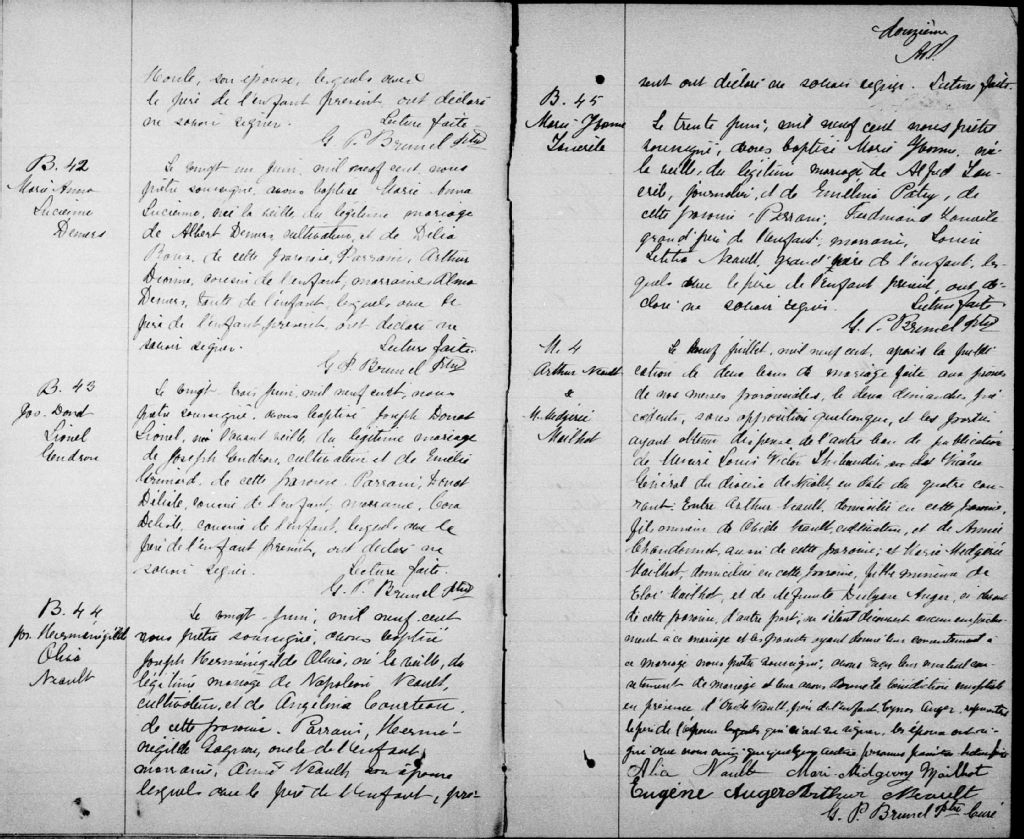 son épouse, lesquels avec
le père de l'enfant présent, ont déclaré
ne savoir signer. Lecture faite.
G. P. Brunel Ptre
B. 42
Marie Anna
Lucienne
Demers
Le vingt un juin, mil neuf cent, nous
prêtre soussigné, avons baptisé Marie Anna
Lucienne, née la veille, du légitime mariage
de Albert Demers, cultivateur, et de Délia
de cette paroisse, Parrain, Arthur
Dionne, cousin de l'enfant, marraine Alma
Demers, tante de l'enfant, lesquels avec le
père de l'enfant présent, ont déclaré ne
savoir signer. Lecture faite.
G. P. Brunel Ptre
B. 43
Jos. Donat
Lionel
Gendron
Le vingt trois juin, mil neuf cent, nous
prêtre soussigné, avons baptisé Joseph Donat
Lionel, né l'avant veille, du légitime mariage
de Joseph Gendron, cultivateur et de Emélie
de cette paroisse. Parrain, Donat
Délisle, cousin de l'enfant, marraine, Cora
Delisle, cousine de l'enfant, lesquels avec le
père de l'enfant présent, ont déclaré ne
savoir signer. Lecture faite.
G. P. Brunel Ptre
B. 44
Jos. Herménégilde
Oliva
Neault
Le vingt juin, mil neuf cent
nous prêtre soussigné, avons baptisé
Joseph Herménégilde Oliva, né la veille, du
légitime mariage de Napoléon Neault,
cultivateur, et de Angelina Courteau,
de cette paroisse. Parrain, Hermé-
négilde Gagnon, oncle de l'enfant,
marraine, Neault, son épouse
lesquels avec le père de l'enfant, pré-
douzième
sent ont déclaré ne savoir signer. Lecture faite.
B. 45
Marie Yvonne
Le trente juin, mil neuf cent nous prêtre
soussigné, avons baptisé Marie Yvonne, née
la veille, du légitime mariage de Alfred
journalier, et de Emélina Patry, de
cette paroisse. Parrain, Ferdinand
grand'père de l'enfant, marraine, Louise
Letitia Neault, grand'mère de l'enfant, les-
quels avec le père de l'enfant présent, ont dé-
claré ne savoir signer. Lecture faite
G. P. Brunel Ptre
M. 4
Arthur Neault
&
M. Medgérie
Mailhot
Le neuf juillet, mil neuf cent, après la publi-
cation de deux bans de mariage faite aux prônes
de nos messes paroissiales, le deux dimanches pré-
cédents, sans opposition quelconque, et les parties
ayant obtenu dispense de l'autre ban de publication
de Louis Victor Thibaudier, Vicaire
Général du diocèse de Nicolet en date du quatre cou-
rant: Entre Arthur Neault, domicilié en cette paroisse,
fils mineur de Ovide Neault, cultivateur, et de
Chandonnet, aussi de cette paroisse; et Marie Medgérie
Mailhot, domiciliée en cette paroisse, fille mineure de
Eloi Mailhot, et de défunte Auger, ci devant
de cette paroisse, d'autre part; ne s'étant découvert aucun empêche-
ment à ce mariage et les parents ayant donné leur consentement à
ce mariage nous prêtre soussigné, avons reçu leur mutuel con-
sentement de mariage et leur avons donné la bénédiction nuptiale
en présence d'Ovide Neault, père de Auger, représentant
le père de l'épouse lesquels
Alia Neault Marie Midgerry Mailhot
Eugène Auger Arthur Neault
G. P. Brunel Ptre Curé